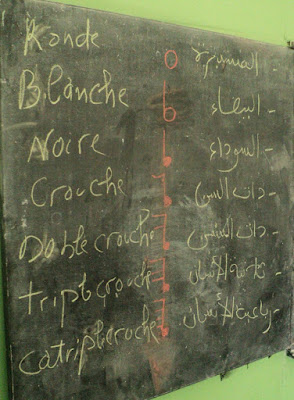 Ronde - المستديرة
Blanche - البيضاء
Noire - السوداء
Crouche - ذات السن
Doble crouche - ذات السنين
tripb crouche - ثلاثية الأسنان
catripbcroche - رباعية الأسنان